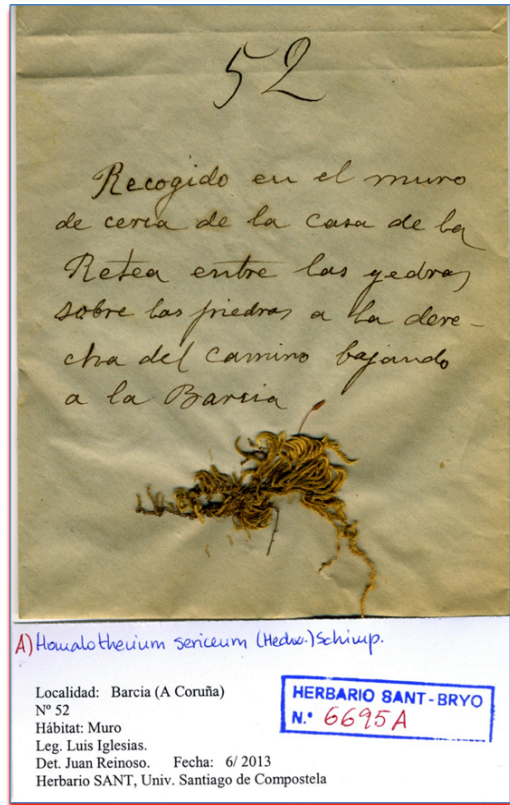 52
Recogido en el muro
de cerca de la casa de la
Retea entre las yedras
sobre las piedras a la dere-
cha del camino bajando
a la Barcia
A) Homalothecium sericeum (Hedw.) Schimp.
Localidad: Barcia (A Coruña)
Nº 52
Hábitat: Muro
Leg. Luis Iglesias.
Det. Juan Reinoso. Fecha: 6/ 2013
Herbario SANT, Univ. Santiago de Compostela
HERBARIO SANT-BRYO
N.º 6695A